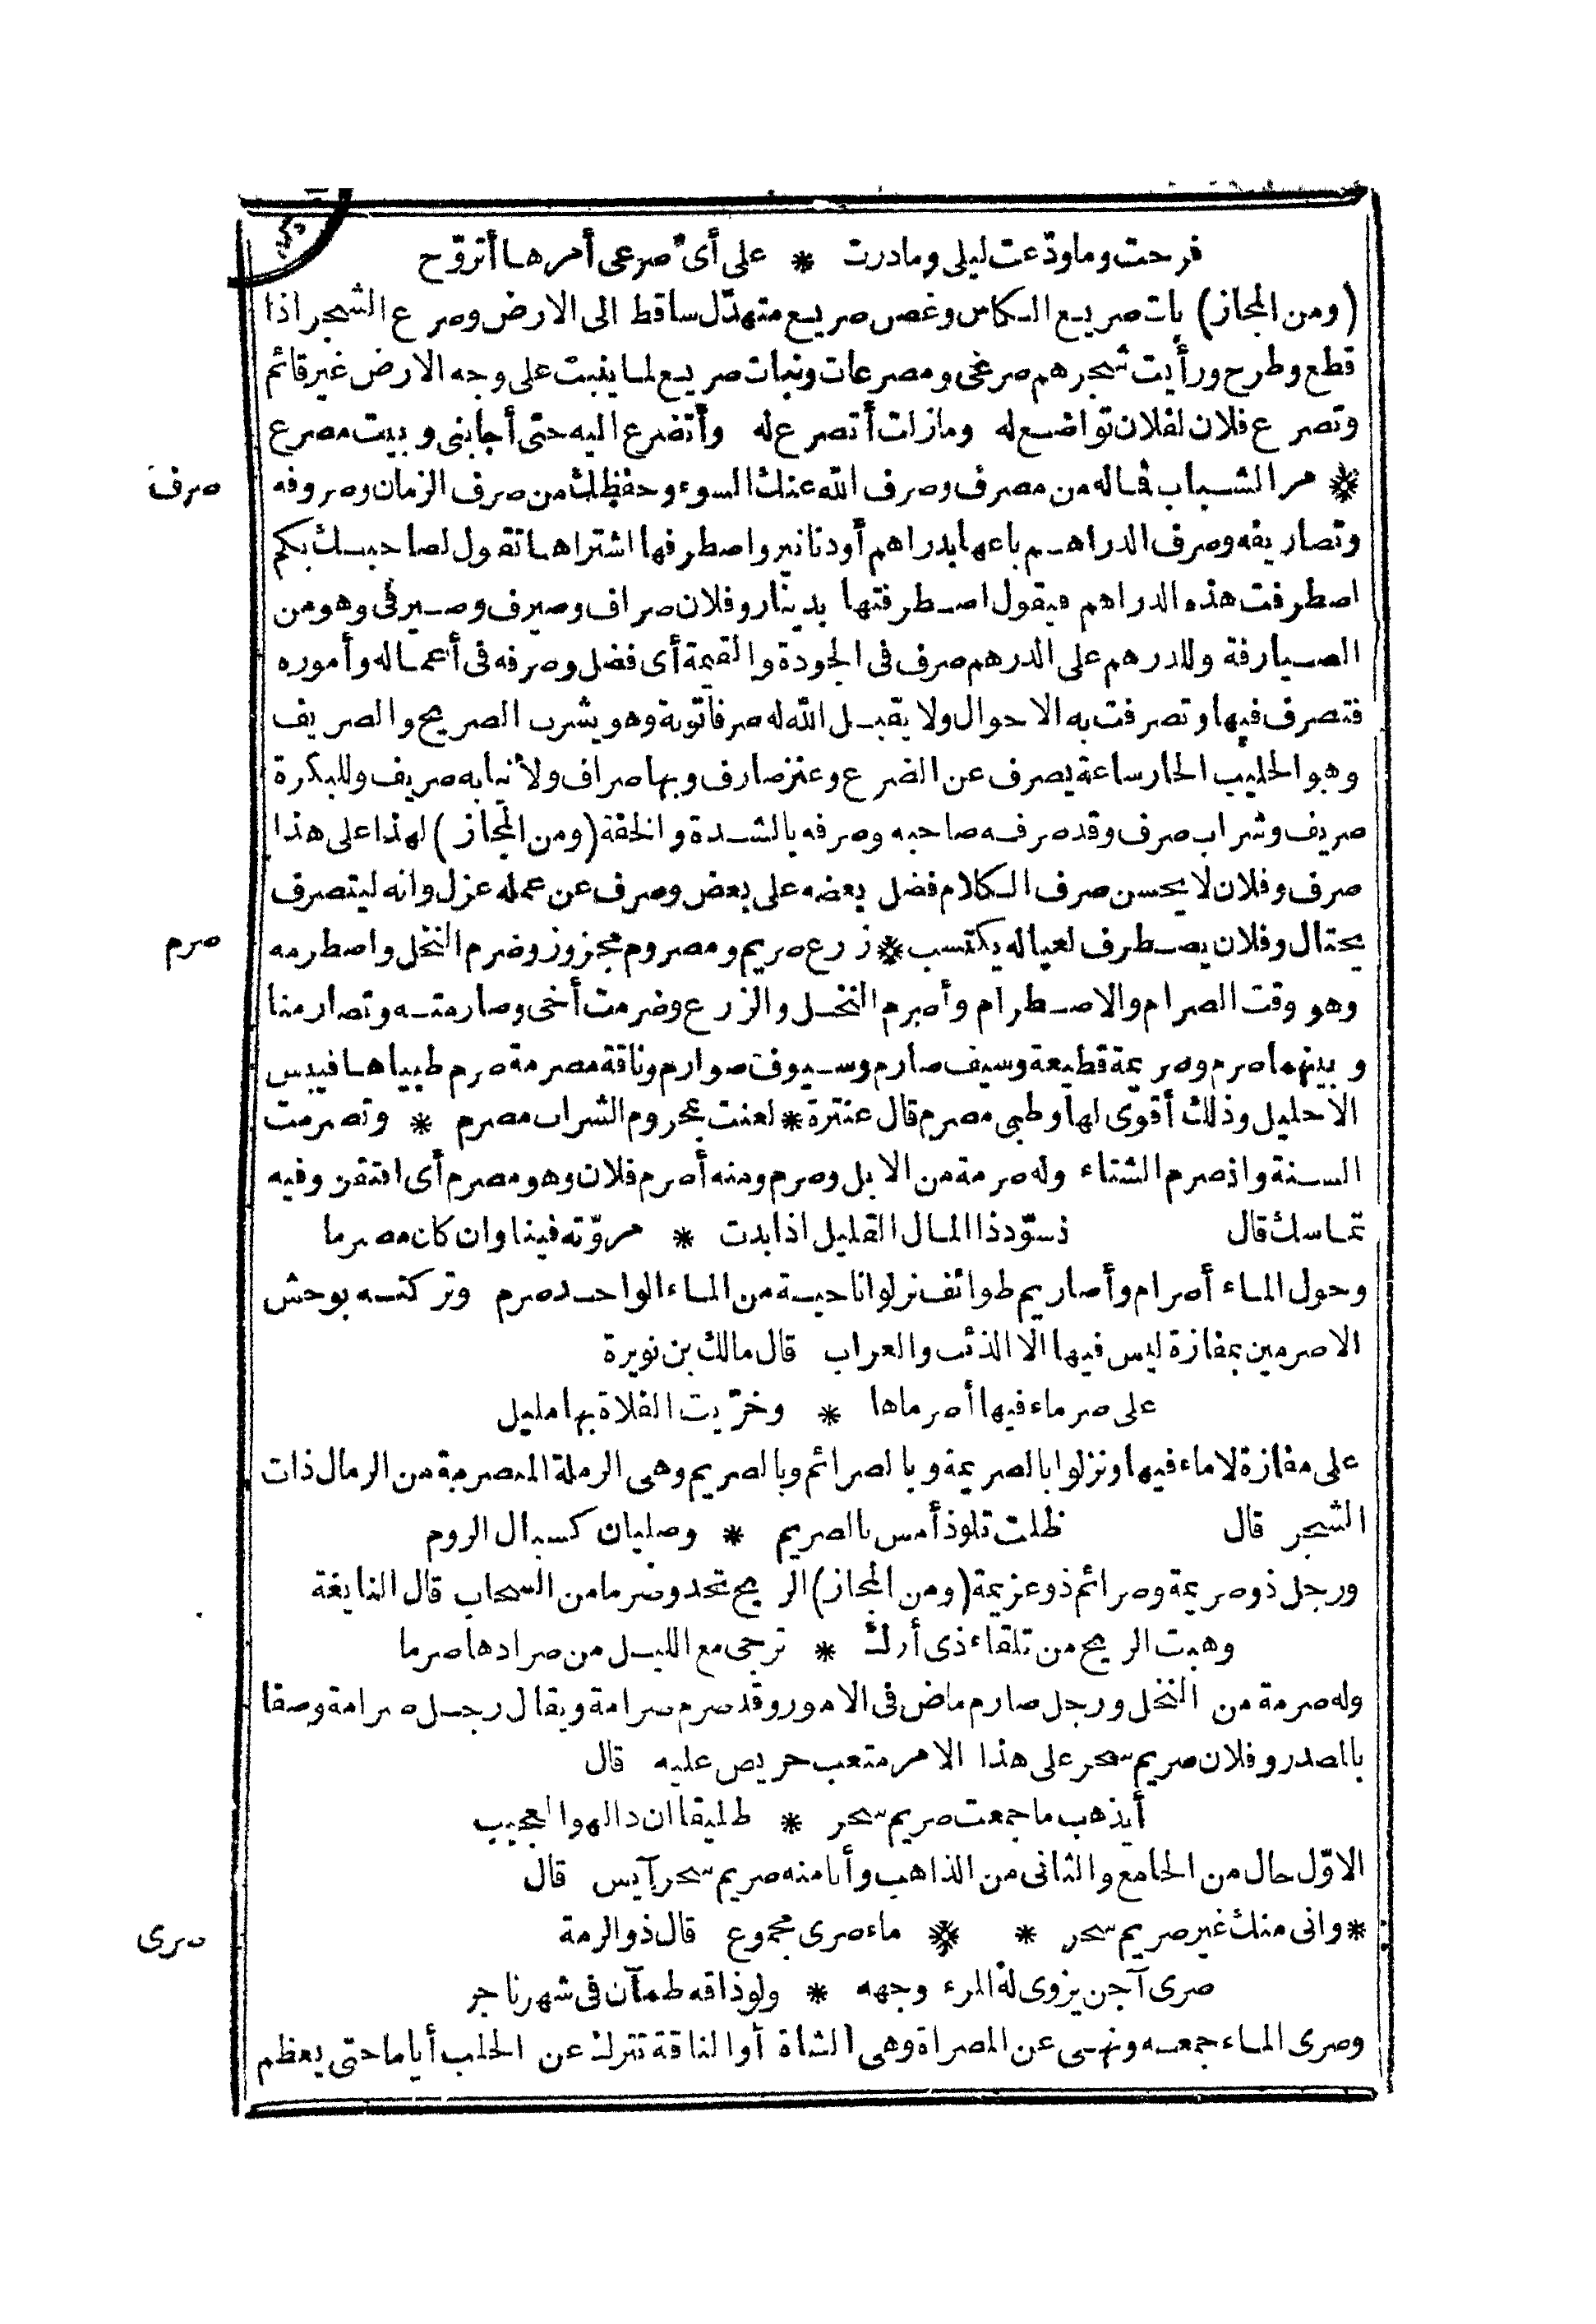 فرحت وما ودّعت ليلى وما درت * على أىّ صرعى أمرها أتروّح
(ومن المجاز) بات صريع الكاس وغصن صريع متهدّل ساقط الى الارض وصرع الشجر اذا
قطع وطرح ورأيت شجرهم صرعى ومصرعات ونبات صريع لما ينبت على وجه الارض غير قائم
وتصرع فلان لفلان تواضع له ومازلت أتصرع له وأتضرع اليه حتى أجابنى وبيت مصرع
صرف
* مر الشباب فماله من مصرف وصرف الله عنك السوء وحفظك من صرف الزمان وصروفه
وتصاريفه وصرف الدراهم باعها بدراهم أو دنانير واصطرفها اشتراها تقول لصاحبك بكم
اصطرفت هذه الدراهم فيقول اصطرفتها بدينار وفلان صراف وصيرف وصيرفى وهو من
الصيارفة وللدرهم على الدرهم صرف فى الجودة والقيمة أى فضل وصرفه فى أعماله وأموره
فتصرف فيها وتصرفت به الاحوال ولا يقبل الله له صرفا توبة وهو يشرب الصريح والصريف
وهو الحليب الحار ساعة يصرف عن الضرع وعنز صارف وبها صراف ولأنيابه صريف وللبكرة
صريف وشراب صرف وقد صرفه صاحبه وصرفه بالشدة والخفة (ومن المجاز) لهذا على هذا
صرف وفلان لا يحسن صرف الكلام فضل بعضه على بعض وصرف عن عمله عزل وانه ليتصرف
صرم
يحتال وفلان يصطرف لعياله يكتسب * زرع صريم ومصروم مجزوز وصرم النخل واصطرمه
وهو وقت الصرام والاصطرام وأصرم النخل والزرع وصرمت أخى وصارمته وتصارمنا
وبينهما صرم وصريمة قطيعة وسيف صارم وسيوف صوارم وناقة مصرمة صرم طبياها فيبس
الاحليل وذلك أقوى لها وطبى مصرم قال عنترة * لعنت بمحروم الشراب مصرم * وتصرمت
السنة وانصرم الشتاء وله صرمة من الابل وصرم ومنه أصرم فلان وهو مصرم أى افتقر وفيه
تماسك قال نسوّد ذا المال القليل اذا بدت * مروّته فينا وان كان مصرما
وحول الماء أصرام وأصاريم طوائف نزلوا ناحية من الماء الواحد صرم وتركته بوحش
الاصرمين بمفازة ليس فيها الا الذئب والغراب قال مالك بن نويرة
على صرماء فيها أصرماها * وخرّيت الفلاة بها مليل
على مفازة لا ماء فيها ونزلوا بالصريمة وبالصرائم وبالصريم وهى الرملة المنصرمة من الرمال ذات
الشجر قال ظلت تلوذ أمس بالصريم * وصليان كسبال الروم
ورجل ذو صريمة وصرائم ذو عزيمة (ومن المجاز) الريح تحدو صرما من السحاب قال النابغة
وهبت الريح من تلقاء ذى أرك * تزجى مع الليل من صرادها صرما
وله صرمة من النخل ورجل صارم ماض فى الامور وقد صرم صرامة ويقال رجل صرامة وصفا
بالمصدر وفلان صريم سحر على هذا الامر متعب حريص عليه قال
أيذهب ما جمعت صريم سحر * طليقا ان ذا لهو العجيب
الاوّل حال من الجامع والثانى من الذاهب وأنا منه صريم سحر آيس قال
صرى
* وانى منك غير صريم سحر * * ماء صرى مجموع قال ذو الرمة
صرى آجن يزوى له المرء وجهه * ولو ذاقه ظمآن فى شهر ناجر
وصرى الماء جمعه ونهى عن المصراة وهى الشاة أو الناقة تترك عن الحلب أياما حتى يعظم